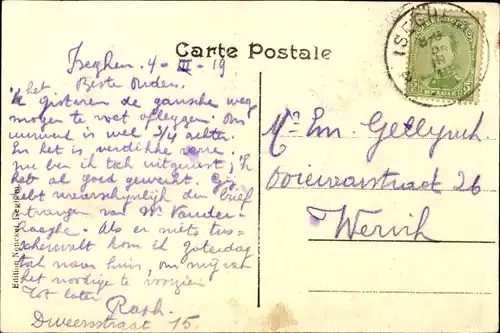 Carte Postale
Iseghem. 4-III-19
Beste Ouders.
'k Gisteren de gansche weg
mogen te voet afleggen. Om
is wel 3/4 achter.
En het is verdikke verre.
nu ben ik toch uitgerust; 'k
heb al goed gewerkt. Gij
hebt waarschijnlijk den brief
ontvangen van Mr Vander-
haeghe. Als er niets tus-
schenvalt kom ik Zaterdag
toch naar huis, om mij van
het noodige te voorzien
Tot later
Raph.
Dweersstraat 15.
Mr Em. Gellynck
Ooievaarstraat 26
Wervik
Edition Nonckel, Iseghem
ISEGHEM